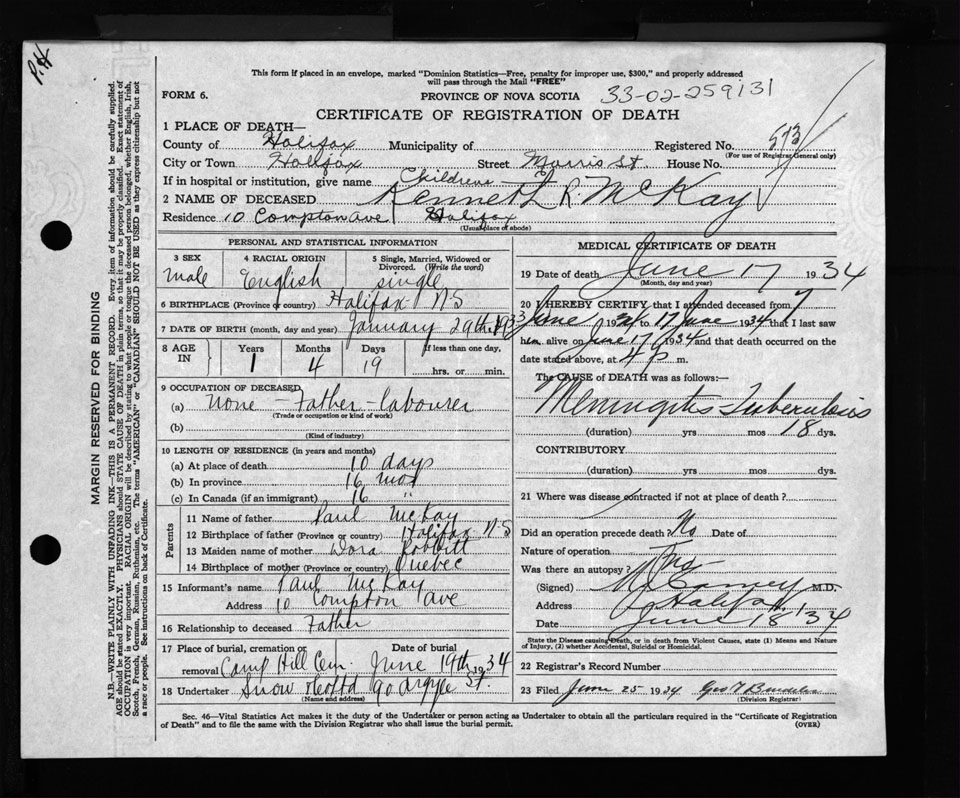 P.H
This form if placed in an envelope, marked "Dominion Statistics—Free, penalty for improper use, $300," and properly addressed
will pass through the Mail "FREE"
FORM 6.
PROVINCE OF NOVA SCOTIA
33-02-259131
CERTIFICATE OF REGISTRATION OF DEATH
1 PLACE OF DEATH—
County of Halifax Municipality of Registered No. 573
(For use of Registrar General only)
City or Town Halifax Street Morris St House No.
If in hospital or institution, give name Childrens
2 NAME OF DECEASED Kenneth R. McKay
Residence 10 Compton Ave Halifax
(Usual place of abode)
PERSONAL AND STATISTICAL INFORMATION
3 SEX 4 RACIAL ORIGIN 5 Single, Married, Widowed or
Divorced. (Write the word)
male English single
6 BIRTHPLACE (Province or country) Halifax N S
7 DATE OF BIRTH (month, day and year) January 29th 1933
8 AGE IN Years Months Days If less than one day,
1 4 19 hrs. or min.
9 OCCUPATION OF DECEASED
(a) none - Father - labourer
(Trade or occupation or kind of work)
(b)
(Kind of industry)
10 LENGTH OF RESIDENCE (in years and months)
(a) At place of death 10 days
(b) In province 16 mos
(c) In Canada (if an immigrant) 16 "
Parents
11 Name of father Paul McKay
12 Birthplace of father (Province or country) Halifax N S
13 Maiden name of mother Dora
14 Birthplace of mother (Province or country) Quebec
15 Informant's name Paul McKay
Address 10 Compton Ave
16 Relationship to deceased Father
17 Place of burial, cremation or Date of burial
removal Camp Hill Cem. June 19th 1934
18 Undertaker Snow & Co Ltd 90 Argyle St.
(Name and address)
MEDICAL CERTIFICATE OF DEATH
19 Date of death June 17 1934
(Month, day and year)
20 I HEREBY CERTIFY that I attended deceased from 7
June 1934 to 17 June 1934 that I last saw
him alive on June 17 1934 and that death occurred on the
date stated above, at 4 p m.
The CAUSE of DEATH was as follows:—
Meningitis Tuberculosis
(duration) yrs mos 18 dys.
CONTRIBUTORY
(duration) yrs mos dys.
21 Where was disease contracted if not at place of death?
Did an operation precede death? No Date of
Nature of operation
Was there an autopsy?
(Signed) M.D.
Address Halifax
Date June 18 '34
State the Disease causing Death, or in death from Violent Causes, state (1) Means and Nature
of Injury, (2) whether Accidental, Suicidal or Homicidal.
22 Registrar's Record Number
23 Filed June 25 1934
(Division Registrar)
Sec. 46—Vital Statistics Act makes it the duty of the Undertaker or person acting as Undertaker to obtain all the particulars required in the "Certificate of Registration
of Death" and to file the same with the Division Registrar who shall issue the burial permit.
(OVER)
MARGIN RESERVED FOR BINDING
N.B.—WRITE PLAINLY WITH UNFADING INK—THIS IS A PERMANENT RECORD. Every item of information should be carefully supplied.
AGE should be stated EXACTLY. PHYSICIANS should STATE CAUSE OF DEATH in plain terms, so that it may be properly classified. Exact statement of
OCCUPATION is very important. RACIAL ORIGIN will be described by stating to what people or tongue the deceased person belonged, whether English, Irish,
Scotch, French, German, Russian, Ruthenian, etc. The terms "AMERICAN" or "CANADIAN" SHOULD NOT BE USED as they express citizenship but not
a race or people. See instructions on back of Certificate.